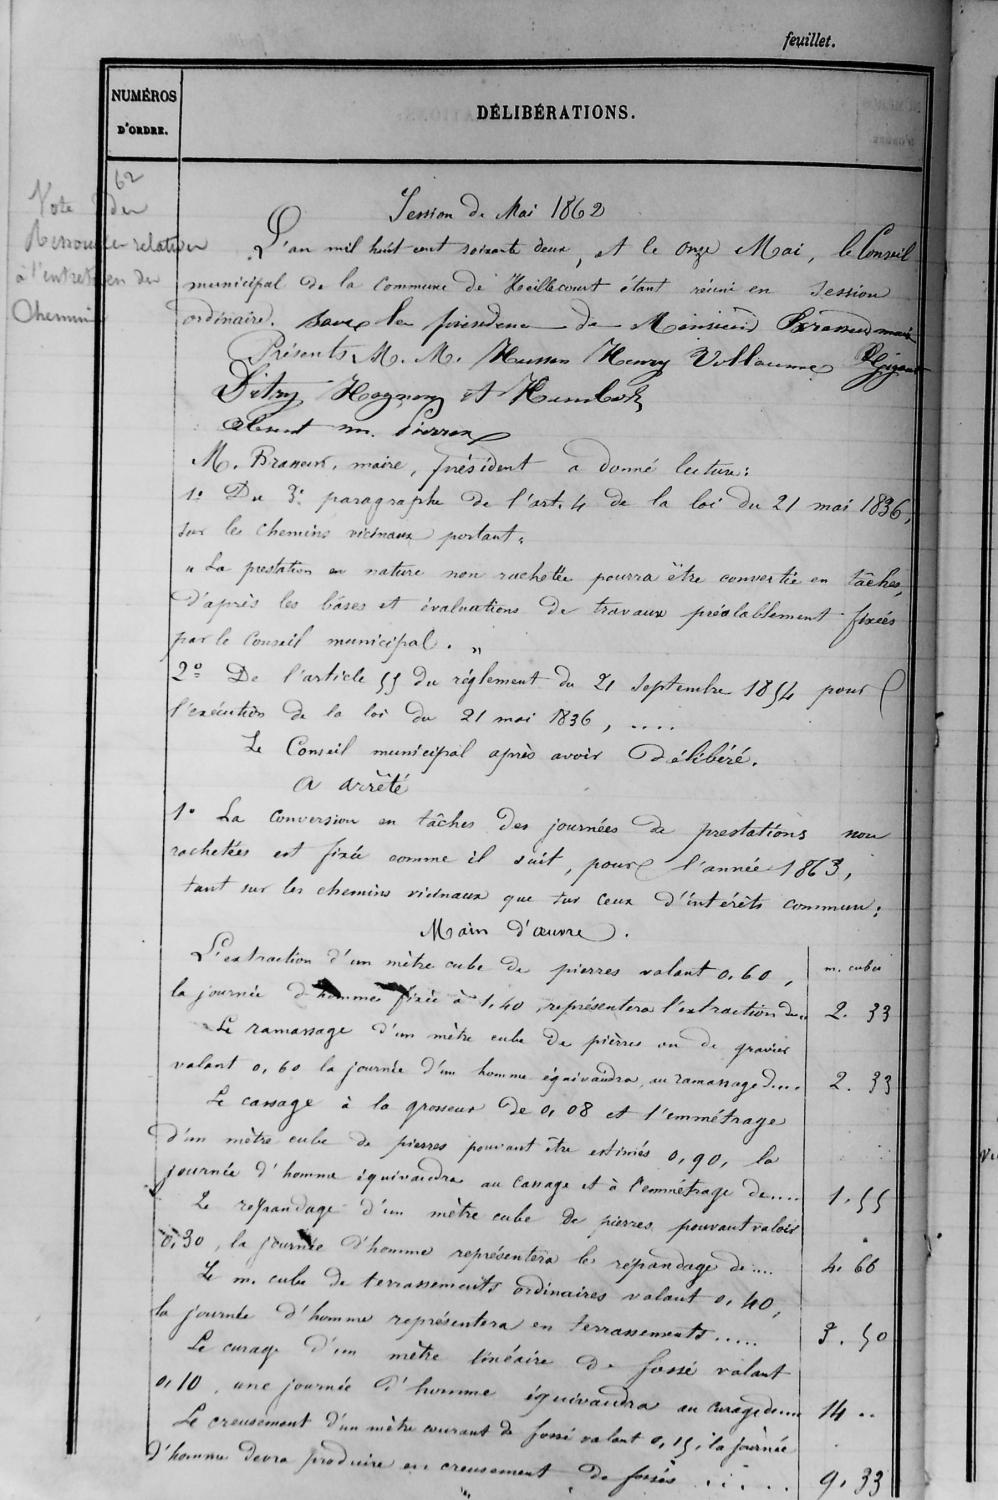 feuillet.
NUMÉROS
D'ORDRE.
DÉLIBÉRATIONS.
62
Vote des
Ressources relatives
à l'entretien des
Chemins
Session de Mai 1862
L'an mil huit cent soixante deux, et le onze Mai, le Conseil
municipal de la Commune de Heillecourt étant réuni en session
ordinaire. sous la présidence de Monsieur Brasseux maire
Présents M. M. Husson Henry Villaume
Ditry Hognon et Humbert
absent m. Pierron
M. Brasseux, maire, président a donné lecture:
1º Du 3e paragraphe de l'art. 4 de la loi du 21 mai 1836,
sur les chemins vicinaux portant:
" La prestation en nature non rachetée pourra être convertie en tâches,
d'après les bâses et évaluations de travaux préalablement fixées
par le Conseil municipal. "
2º De l'article 55 du réglement du 21 Septembre 1854 pour
l'exécution de la loi du 21 mai 1836, ....
Le Conseil municipal après avoir Délibéré.
A arrêté
1º La conversion en tâches des journées de prestations non
rachetées est fixée comme il suit, pour l'année 1863,
tant sur les chemins vicinaux que sur ceux d'intérêts commun:
Main d'œuvre.
L'extraction d'un mètre cube de pierres valant 0,60, m. cubes
la journée d'homme fixée à 1,40, représentera l'extraction de.. 2. 33
Le ramassage d'un mètre cube de pierres ou de gravier
valant 0,60 la journée d'un homme équivaudra au ramassage d.... 2. 33
Le cassage à la grosseur de 0,08 et l'emmétrage
d'un mètre cube de pierres pouvant être estimés 0,90, la
journée d'homme équivaudra au cassage et à l'emmétrage de.... 1,55
Le répandage d'un mètre cube de pierres pouvant valoir
0,30, la journée d'homme représentera le répandage de.... 4. 66
Le m. cube de terrassements ordinaires valant 0,40,
la journée d'homme représentera en terrassements ..... 3. 50
Le curage d'un mètre linéaire de fossé valant
0,10, une journée d'homme équivaudra au curage de.... 14 ..
Le creusement d'un mètre courant de fossé valant 0,15, la journée
d'homme devra produire en creusement de fossés ..... 9. 33